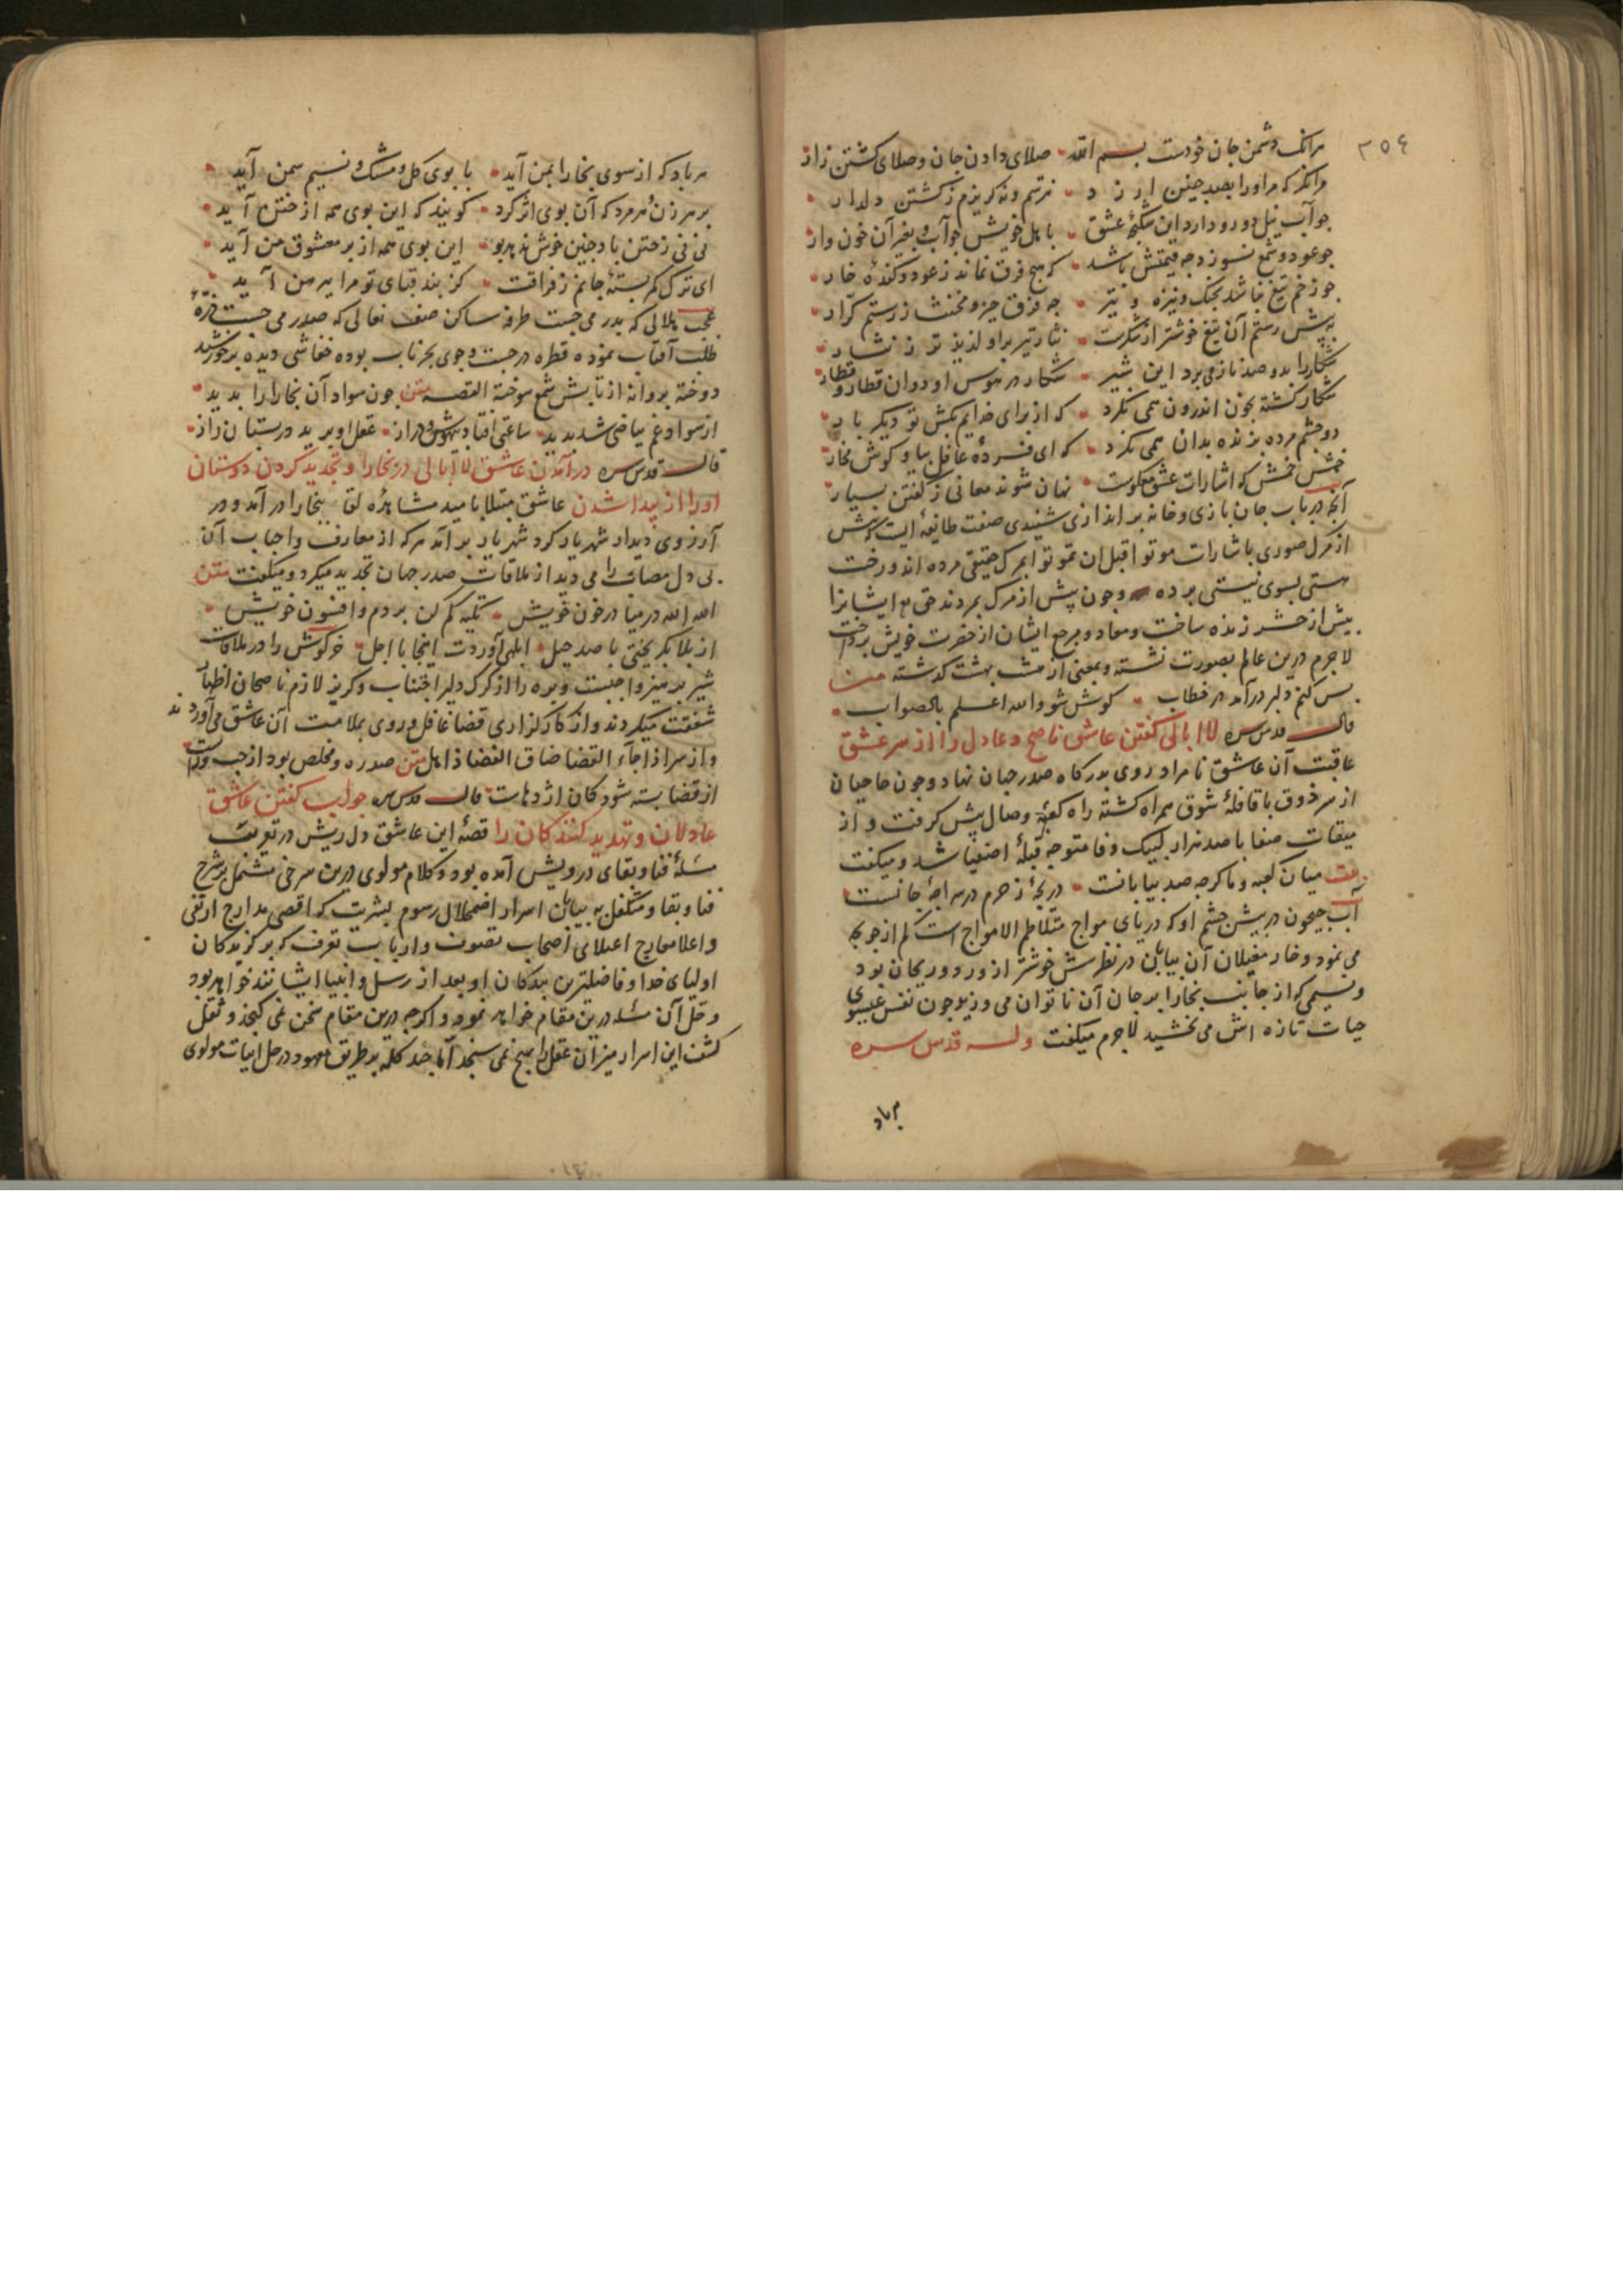 ٣٥٤
هرانک دشمن جان خودست بسم الله صلای دادن جان وصلای کشتن زار
هرانکه که مرا اورا بصد چنین ارزد نترسم ونه کریزم زکشتن دلدار
جو آب نیل دو رو دارد این شکنجهٔ عشق با هل خویش جو آب وبغیر آن خون وار
جو عود وشمع نسوزد جه قیمتش باشد که هیچ فرق نماند زعود وکندهٔ خار
جو زخم تیغ نباشد بجنک ونیزه و تیر جه فرق حیز ومخنث ز رستم کرّار
به پیش رستم آن تیغ خوشتر از شکرست نثار تیر بر او لذیذ تر ز نثار
شکار را بدو صد ناز می برد این شیر شکار در هوس او دوان قطار قطار
شکار کشته بخون اندرون همی نکرد که از برای خدایم بکش تو دیکر بار
دو جشم مرده بزنده بدان همی نکرد که ای فسردهٔ غافل بیا و کوش مخار
خمش خمش که اشارات عشق معکوست نهان شوند معانی ز کفتن بسیار
آنجه در باب جان بازی وخانه بر اندازی شنیدی صفت طائفهٔ ایست که پیش
از مرک صوری باشارات موتوا قبل ان تموتوا بمرک حقیقی مرده اند ورخت
هستی بسوی نیستی برده وجون پیش از مرک بمردند حق هم ایشانرا
پیش از حشر زنده ساخت ومعاد ومرجع ایشان از حضرت خویش پرداخت
لاجرم درین عالم بصورت نشسته وبمعنی از هشت بهشت کذشته متن
بس کنم دلبر درآمد در خطاب کوش شو والله اعلم بالصواب
قال قدس سره لاابالی کفتن عاشق ناصح وعاذل را از سر عشق
عاقبت آن عاشق نامراد روی بدرکاه صدر جهان نهاد وجون حاجیان
از سر ذوق با قافلهٔ شوق همراه کشته راه کعبهٔ وصال پیش کرفت و از
میقات صفا با صد هزار لبیک وفا متوجه قبلهٔ اصفیا شد ومیکفت
بیت میان کعبه وما کرجه صد بیابانست دریجهٔ ز حرم در سراجهٔ جانست
آب جیحون در پیش جشم او که دریای مواج متلاطم الامواج است کم از جوی
می نمود وخار مغیلان آن بیابان در نظرش خوشتر از ورد وریحان بود
ونسیمی که از جانب بخارا بر جان آن ناتوان می وزید جون نفس عیسوی
حیات تازه اش می بخشید لاجرم میکفت وله قدس سره
هر باد
هر باد که از سوی بخارا بمن آید با بوی کل ومشک ونسیم سمن آید
بر هر زن و هر مرد که آن بوی اثر کرد کویند که این بوی همه از ختن آید
نی نی زختن باد جنین خوش ندهد بو این بوی همه از بر معشوق من آید
ای ترک کمر بستهٔ جانم ز فراقت کز بند قبای تو مرا پیرهن آید
عجب هلالی که بدر می جست طرفه ساکن صف نعالی که صدر می جست ذرّهٔ
طلب آفتاب نموده قطره در جست وجوی بحر ناب بوده خفاشی دیده بر خورشید
دوخته پروانه از تابش شمع سوخته القصه متن جون سواد آن بخارا را بدید
از سواد غم بیاضی شد بدید ساعتی افتاد بیهوش ودراز عقل او پرید در بستان راز
قال قدس سره در آمدن عاشق لاابالی در بخارا وتحذیر کردن دوستان
اورا از پیدا شدن عاشق مبتلا بامید مشاهدهٔ لقا ببخارا در آمد و در
آرزوی دیدار شهریار کرد شهر یار بر آمد هرکه از معارف واحباب آن
بی دل مصاب را می دید از ملاقات صدر جهان تحذیر میکرد ومیکفت متن
الله الله در میا در خون خویش تکیه کم کن بر دم وافسون خویش
از بلا بکریختی با صد حیل ابلهی آوردت اینجا با اجل خرکوش را در ملاقات
شیر پرهیز واجبست وبره را از کرک دلیر اجتناب وکریز لازم ناصحان اظهار
شفقت میکردند واز کار کزاری قضا غافل وروی بملامت آن عاشق می آوردند
واز سر اذا جآء القضا ضاق الفضا ذاهل متن صد ره ومخلص بود از چپ وراست
از قضا بسته شود کان اژدهاست قال قدس سره جواب کفتن عاشق
عاذلان وتهدید کنندکان را قصهٔ این عاشق دل ریش در تعریف
مسئلهٔ فنا وبقای درویش آمده بود وکلام مولوی درین سرخی مشتمل بر شرح
فنا وبقا ومتکفل به بیان اسرار اضمحلال رسوم بشریت که اقصی مدارج ارتقی
واعلا معارج اعتلای اصحاب تصوف وارباب تعرف که برکزیدکان
اولیای خدا وفاضلترین بندکان او بعد از رسل وانبیا ایشانند خواهد بود
وحل آن مسئله درین مقام خواهد نمود واکرجه درین مقام سخن نمی کنجد وثقل
کشف این اسرار میزان عقل را هیج نمی سنجد اما جند کلمه بر طریق معهود در حل ابیات مولوی